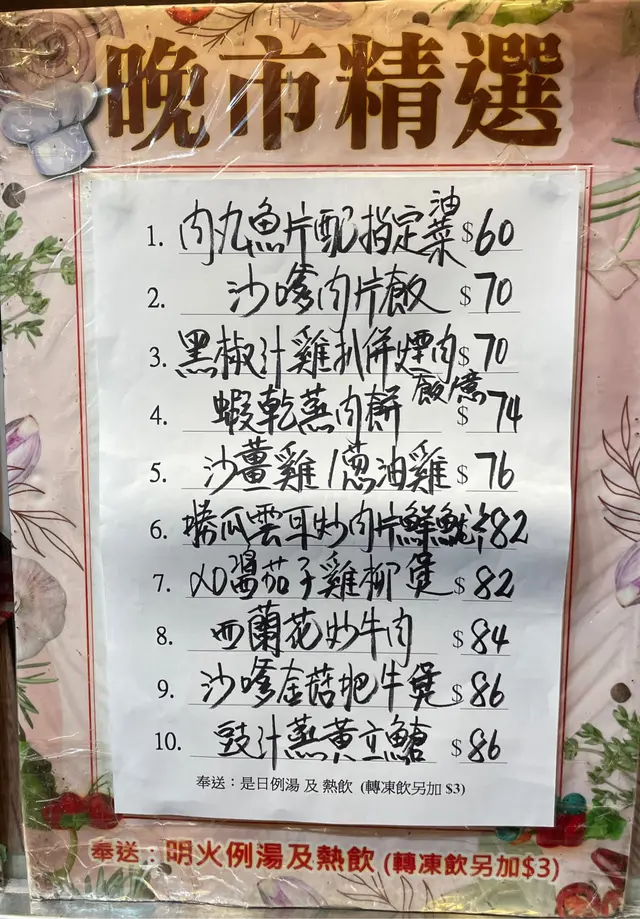 晚市精選
1. 肉丸魚片配指定油菜 $60
2. 沙嗲肉片飯 $70
3. 黑椒汁雞扒併煙肉飯/意 $70
4. 蝦乾蒸肉餅 $74
5. 沙薑雞/葱油雞 $76
6. 勝瓜雲耳炒肉片鮮魷 $82
7. XO醬茄子雞柳煲 $82
8. 西蘭花炒牛肉 $84
9. 沙嗲金菇肥牛煲 $86
10. 豉汁蒸黃立鯧 $86
奉送：是日例湯 及 熱飲 (轉凍飲另加 $3)
奉送：明火例湯及熱飲 (轉凍飲另加$3)